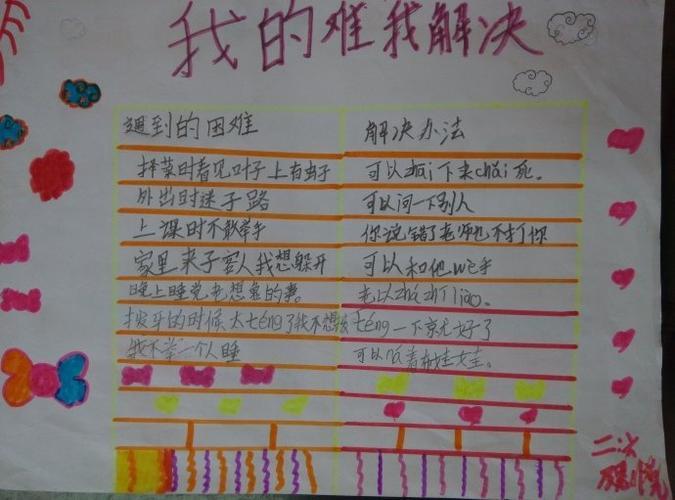 我的难我解决
遇到的困难
解决办法
择菜时看见叶子上有虫子
可以zhāi下来chǎi死。
外出时迷了路
可以问一下别人
上课时不敢举手
你说错了老师也不打你
家里来了客人我想躲开
可以和他wò手
晚上睡觉老想鬼的事。
拔牙的时候太téng了我不想拔
téng一下就好了
我不敢一个人睡
可以抱着娃娃。
二